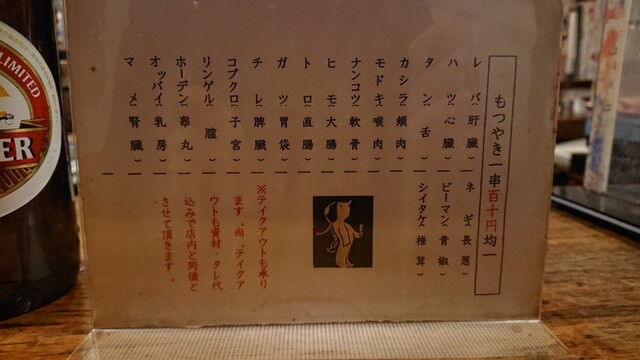 もつやき一串百十円均一
レバ(肝臓)ー
ハツ(心臓)ー
タン(舌)ー
カシラ(頬肉)ー
モドキ(喉肉)ー
ナンコツ(軟骨)ー
ヒモ(大腸)ー
トロ(直腸)ー
ガツ(胃袋)ー
チレ(脾臓)ー
コブクロ(子宮)ー
リンゲル(膣)ー
ホーデン(睾丸)ー
オッパイ(乳房)ー
マメ(腎臓)ー
ネギ(長葱)
ピーマン(青椒)
シイタケ(椎茸)
※テイクアウトも承り
ます。尚、テイクア
ウトも資材・タレ代
込みで店内と同値と
させて頂きます。
LIMITED
ER